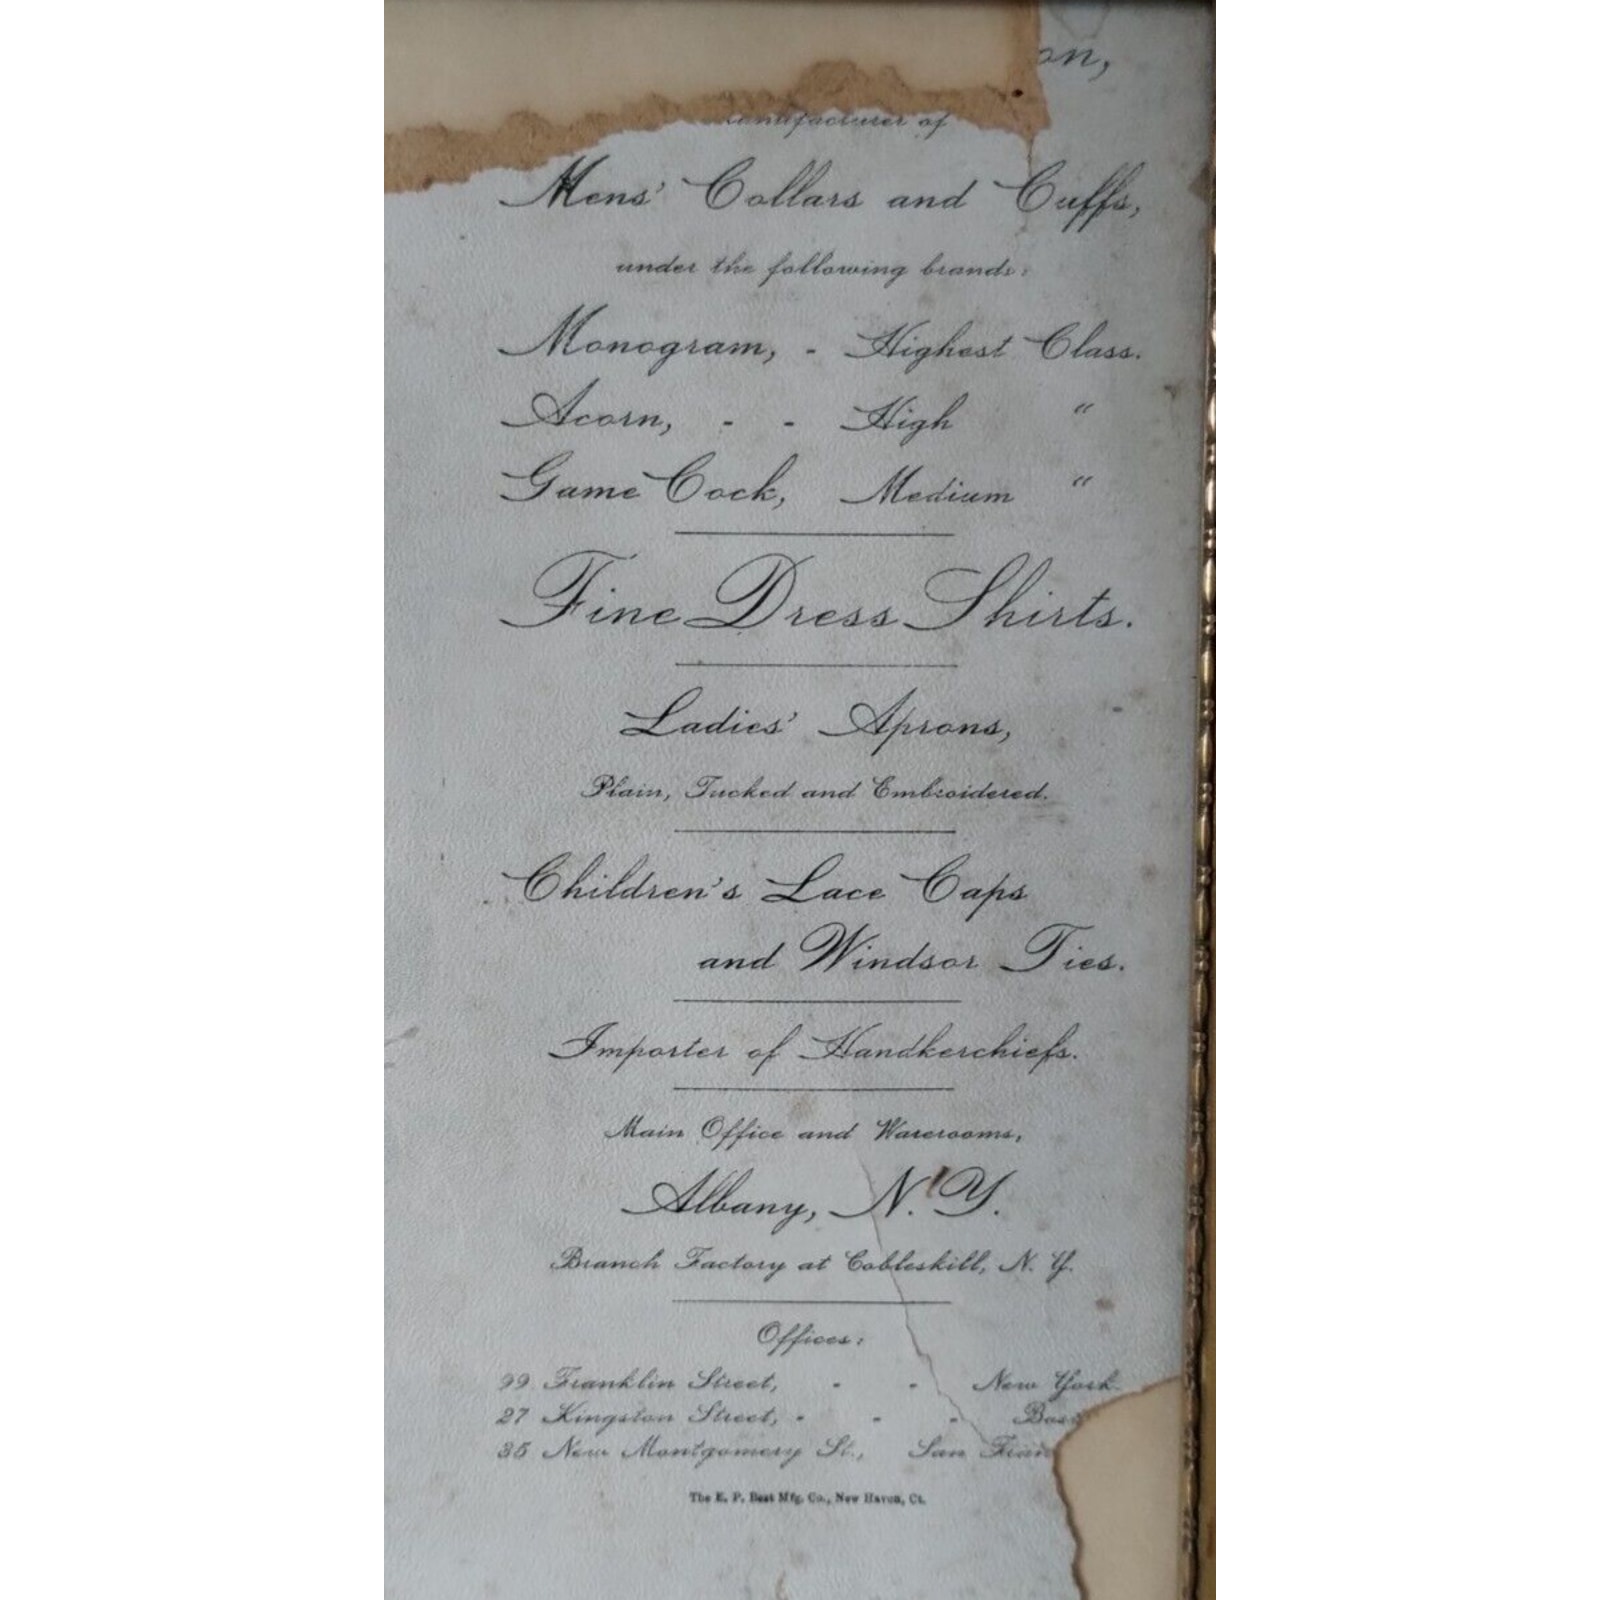 on,
manufacturer of
Mens' Collars and Cuffs,
under the following brands:
Monogram, - Highest Class.
Acorn, - - High "
Game Cock, Medium "
Fine Dress Shirts.
Ladies' Aprons,
Plain, Tucked and Embroidered.
Children's Lace Caps
and Windsor Ties.
Importer of Handkerchiefs.
Main Office and Warerooms,
Albany, N.Y.
Branch Factory at Cobleskill, N. Y.
Offices:
99 Franklin Street, - - New York.
27 Kingston Street, - - - Bos
35 New Montgomery St., San Fran
The E. P. Best Mfg. Co., New Haven, Ct.